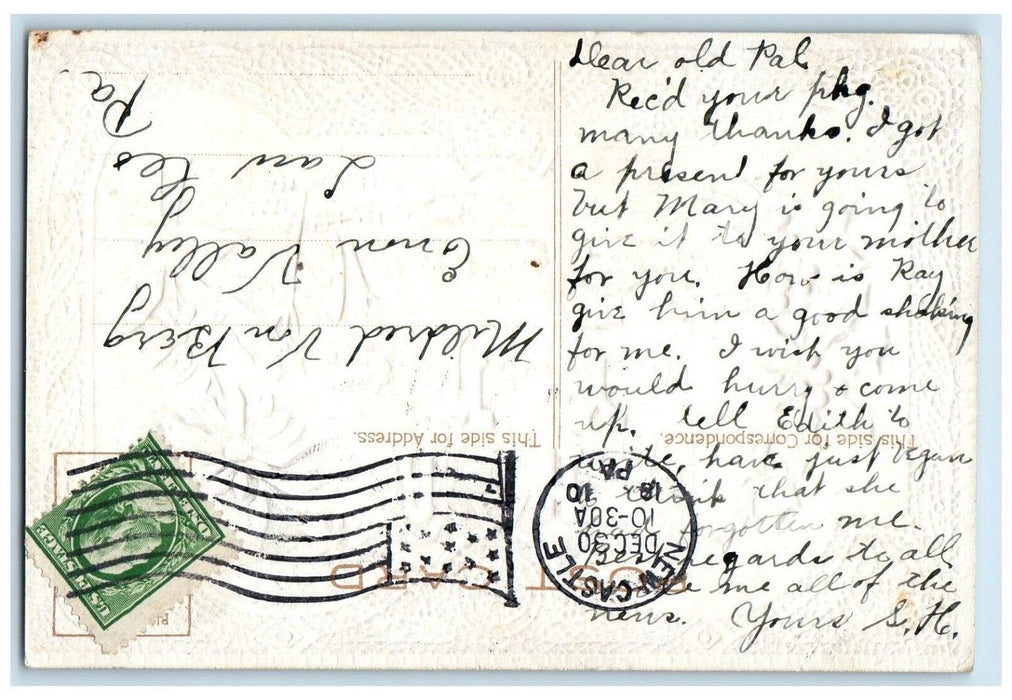 Dear old Pal
Rec'd your pkg.
many thanks. I got
a present for yours
but Mary is going to
give it to your mother
for you. How is Ray
give him a good shaking
for me. I wish you
would hurry & come
up. tell Edith to
write, have just began
to think that she
forgotten me.
regards to all
me all of the
news. Yours S. H.
This side for Correspondence.
POST CARD
This side for Address.
NEW CASTLE
DEC 30
10-30A
1910
PA
Mildred Von Berg
Enon Valley
Law Co
Pa.